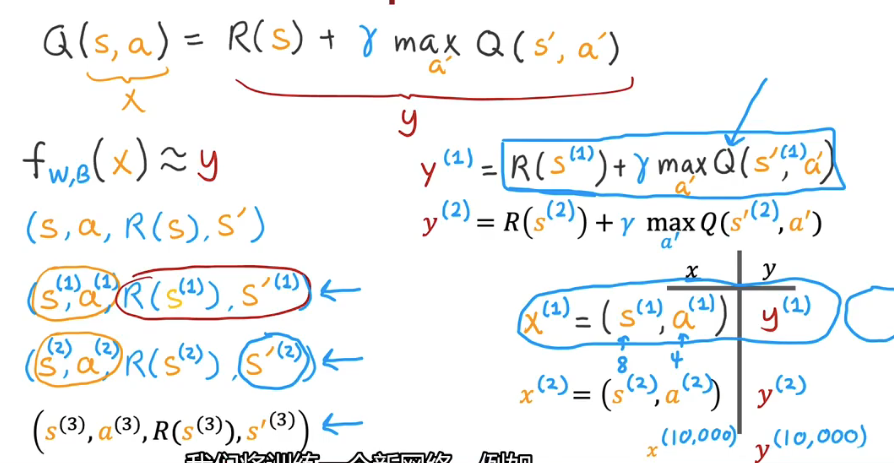 Q(s, a) = R(s) + γ max Q(s′, a′)
a′
x
y
f_{W,B}(x) ≈ y
(s, a, R(s), s′)
(s^{(1)}, a^{(1)}, R(s^{(1)}), s′^{(1)}) ←
(s^{(2)}, a^{(2)}, R(s^{(2)}), s′^{(2)}) ←
(s^{(3)}, a^{(3)}, R(s^{(3)}), s′^{(3)}) ←
y^{(1)} = R(s^{(1)}) + γ max Q(s′^{(1)}, a′)
a′
y^{(2)} = R(s^{(2)}) + γ max Q(s′^{(2)}, a′)
a′
x y
x^{(1)} = (s^{(1)}, a^{(1)}) y^{(1)}
8 4
x^{(2)} = (s^{(2)}, a^{(2)}) y^{(2)}
x^{(10,000)} y^{(10,000)}
我们将训练一个新网络，例如